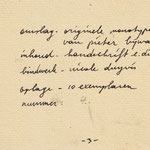 omslag - originele monotype
van pieter bijwa
inhoud - handschrift e. di
bindwerk - nicole duyvis
oplage - 10 exemplaren
nummer -
- 3 -